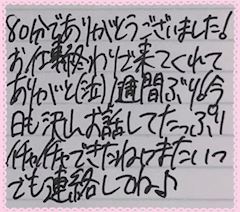 80分でありがとうございました!
お仕事終わりで来てくれて
ありがと(泣)1週間ぶり!!今
日も沢山お話してたっぷり
イチャイチャできたねまたいつ
でも連絡してね♪